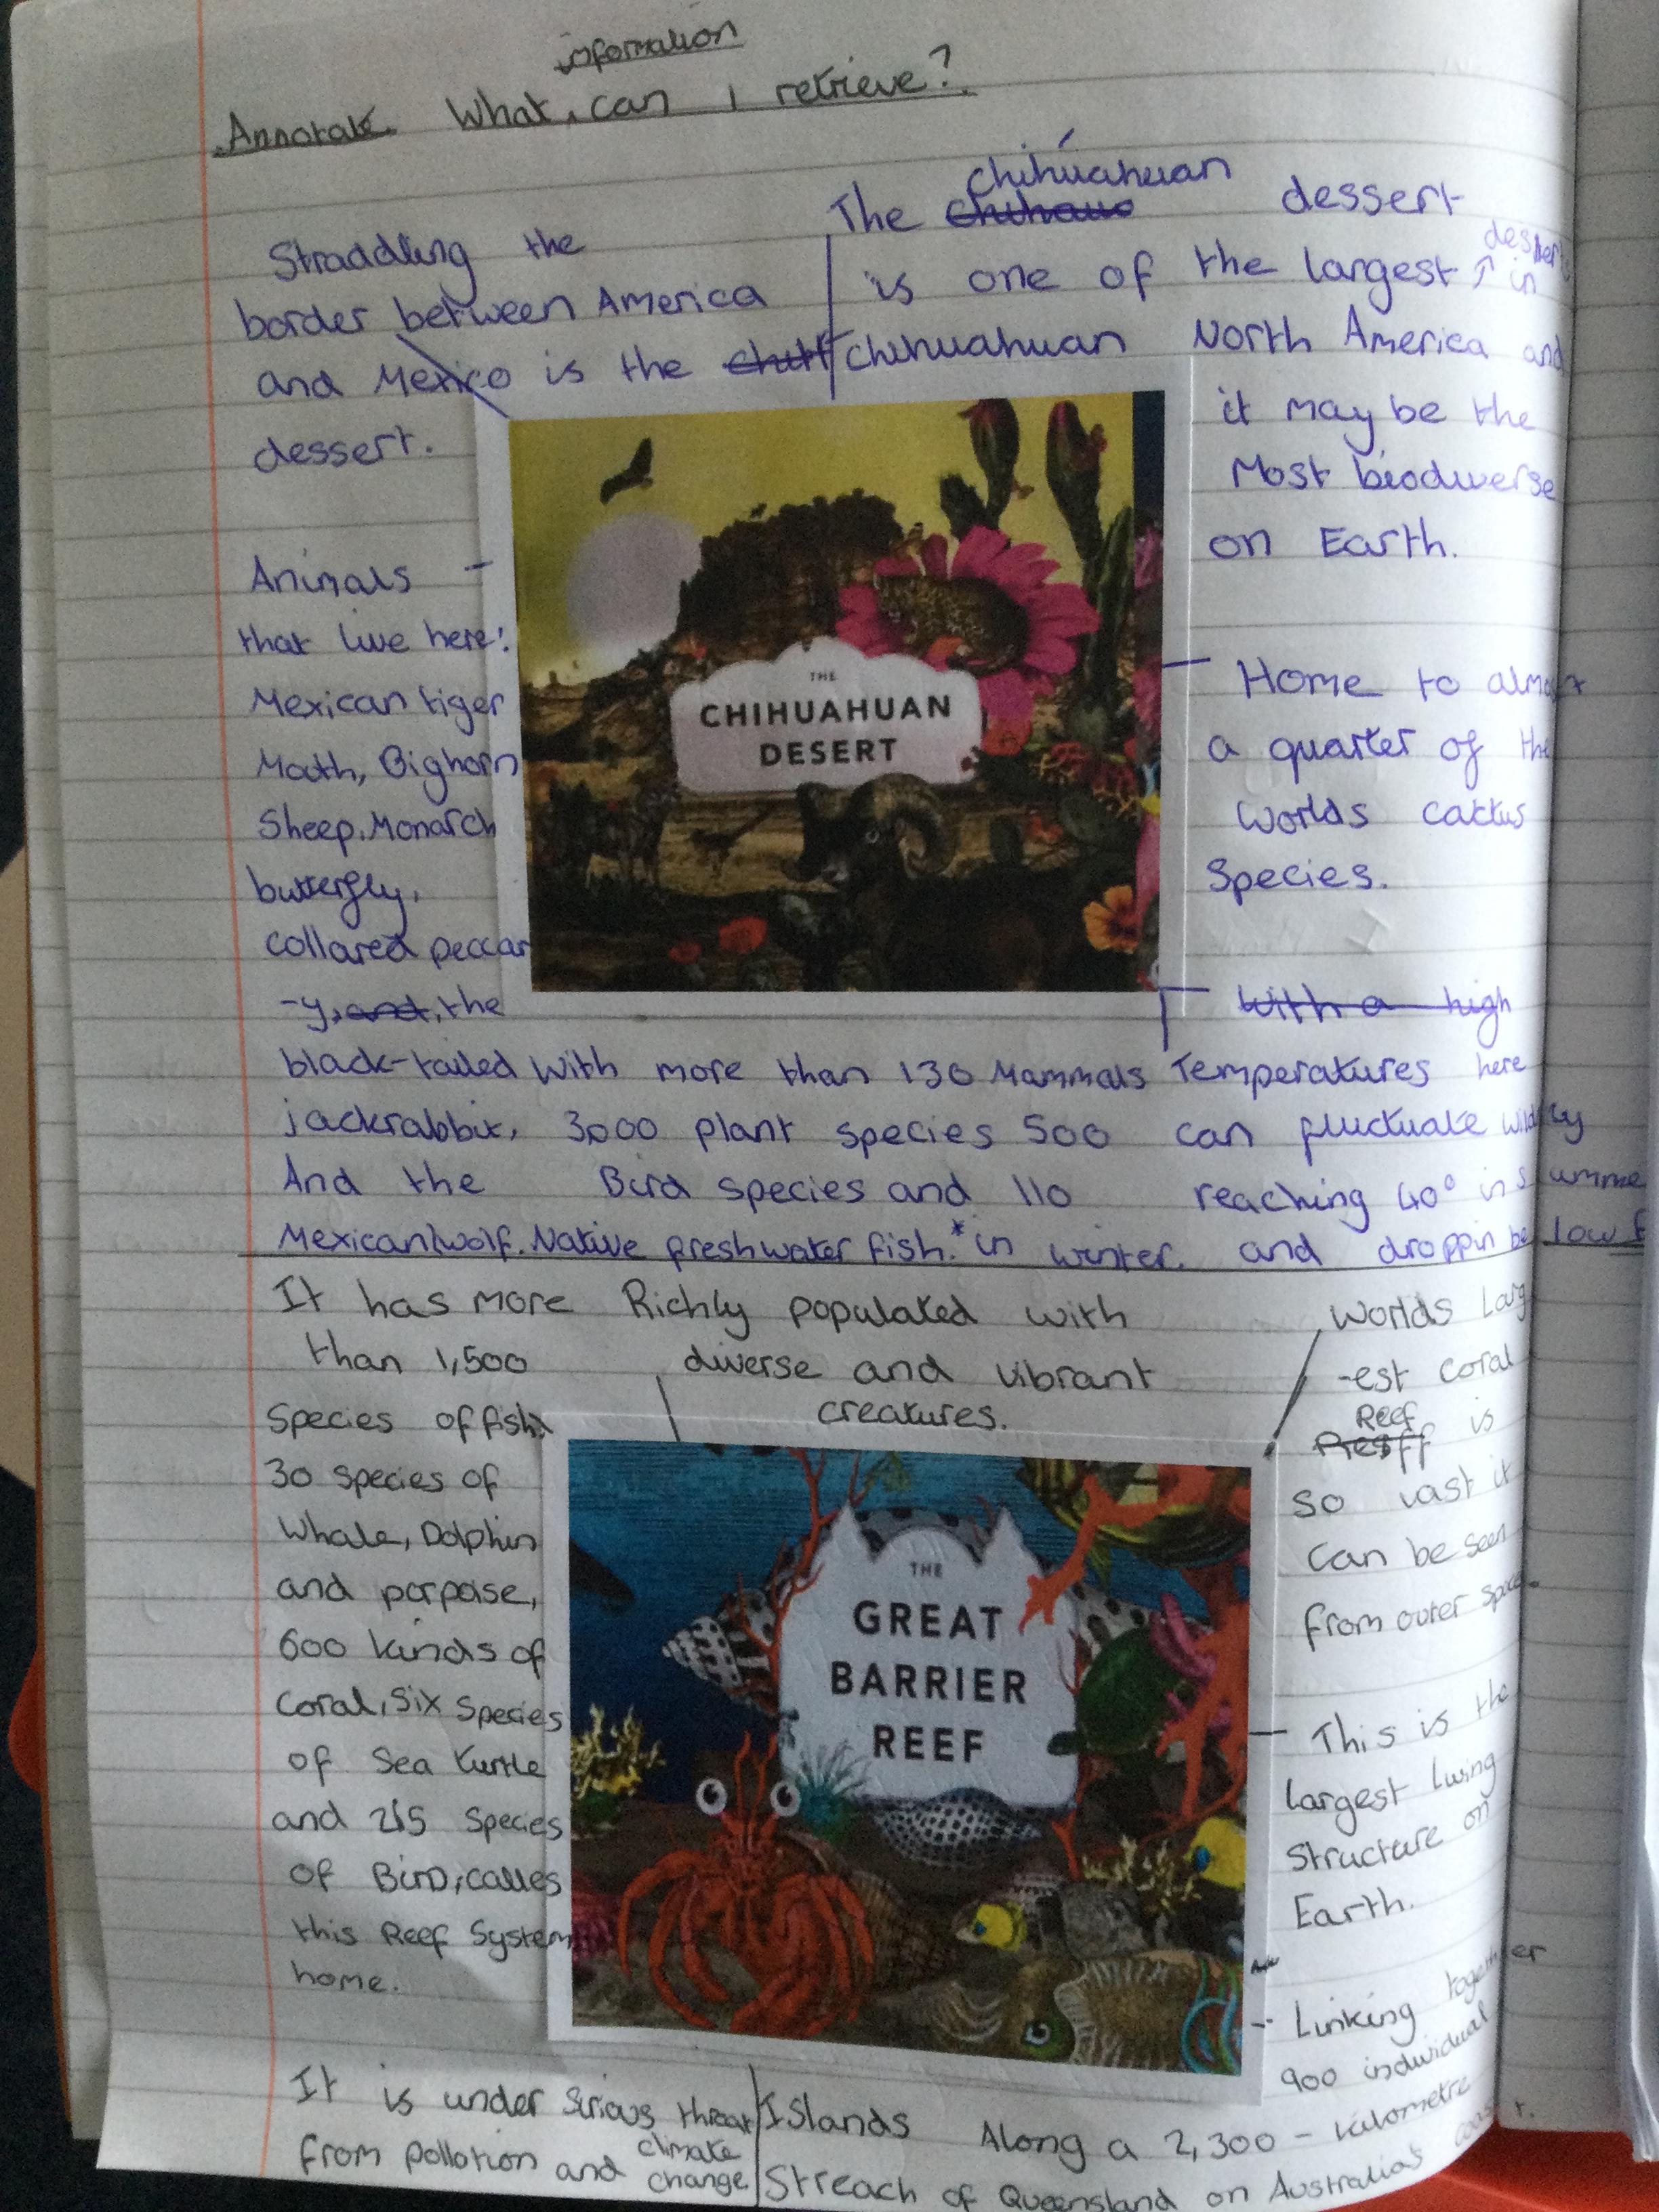 information
Annotate What can I retrieve?
Straddling the
border between America
and Mexico is the Chihuahuan
dessert.
The Chihuahuan dessert
is one of the largest in
North America and
it may be the
Most biodiverse
on Earth.
Animals
that live here:
Mexican tiger
Moth, Bighorn
Sheep, Monarch
butterfly,
collared peccar
-y, the
black-tailed
jackrabbit,
And the
Mexican wolf.
THE
CHIHUAHUAN
DESERT
Home to almost
a quarter of the
Worlds cactus
Species.
With a high
With more than 130 Mammals
3,000 plant species 500
Bird species and 110
Native freshwater fish.*
Temperatures here
can fluctuate wildly
reaching 40° in summe
and droppin below
in winter.
It has more
than 1,500
Species of fish,
30 Species of
Whale, Dolphin
and porpoise,
600 kinds of
Coral, Six Species
of Sea turtle
and 215 Species
of Bird, calles
this Reef System
home.
Richly populated with
diverse and vibrant
creatures.
Worlds Larg
-est coral
Reef is
so vast it
can be seen
from outer space.
THE
GREAT
BARRIER
REEF
This is the
largest living
Structure on
Earth.
Linking together
900 individual
Islands Along a 2,300 - kilometre
Streach of Queensland on Australias coast.
It is under Sirious threat
from pollotion and climate
change